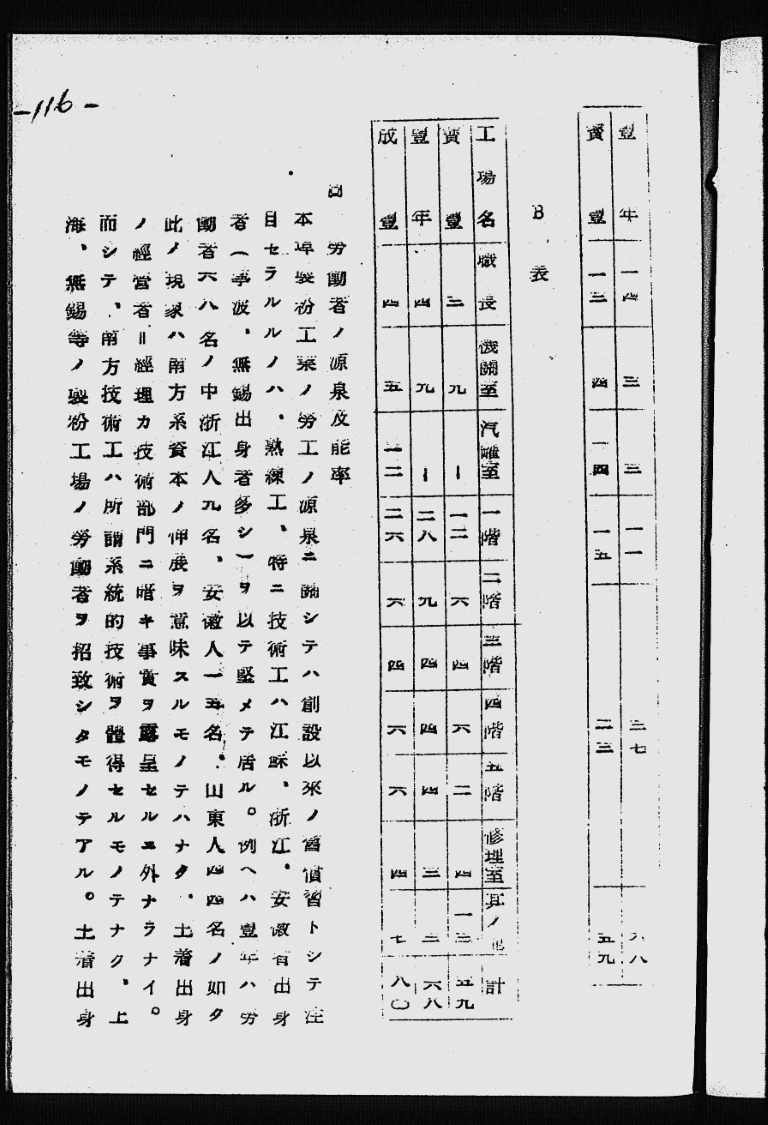 -116-
豐年 一四 三 三 一一 三七 六八
賚豐 一三 四 一四 一五 二三 五九
B、表
工場名 職長 機關室 汽罐室 一階 二階 三階 四階 五階 修理室 其ノ他 計
賚豐 三 九 一 一二 六 四 六 二 四 一三 五九
豐年 四 九 一 二八 九 四 四 四 三 二 六八
成豐 四 五 一二 二六 六 四 六 六 四 七 八〇
口 労働者ノ源泉及能率
本埠製粉工業ノ労工ノ源泉ニ關シテハ創設以來ノ舊慣習トシテ注
目セラルルノハ、熟練工、特ニ技術工ハ江蘇、浙江、安徽省出身
者(寧波、無錫出身者多シ)ヲ以テ堅メテ居ル。例ヘハ豐年ハ労
働者六八名ノ中浙江人九名、安徽人一五名、山東人四四名ノ如ク
此ノ現象ハ南方系資本ノ伸展ヲ意味スルモノテハナク、土着出身
ノ經營者=經理カ技術部門ニ暗キ事實ヲ露呈セルニ外ナラナイ。
而シテ、南方技術工ハ所謂系統的技術ヲ體得セルモノテナク、上
海、無錫等ノ製粉工場ノ労働者ヲ招致シタモノテアル。土着出身